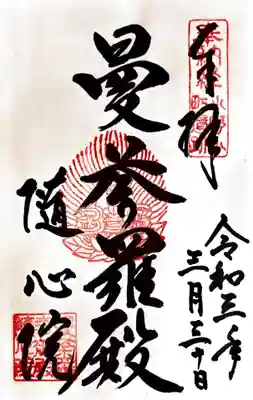 奉拝
令和三年
三月三十日
曼荼羅殿
随心院